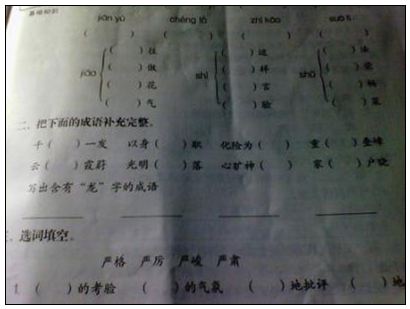 jiān yù chéng fá zhī kāo
( ) ( ) ( ) ( )
( )往 ( )述 ( )法
jiāo ( )做 shì ( )样 shū ( )
( )花 ( )言 ( )畅
( )气 ( )验 ( )菜
二、把下面的成语补充完整。
千( )一发 以身( )职 化险为( ) 重( )叠嶂
云( )霞蔚 光明( )落 心旷神( ) 家( )户晓
写出含有“龙”字的成语
选词填空。
严格 严厉 严峻 严肃
1.( )的考验 ( )的气氛 ( )地批评 ( )地